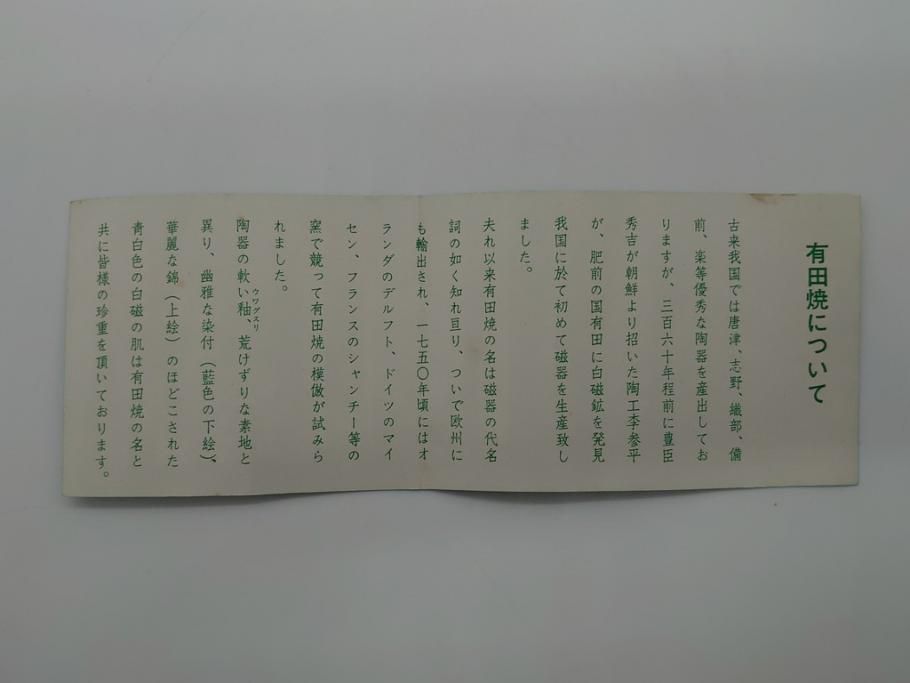 有田焼について
古来我国では唐津、志野、織部、備
前、楽等優秀な陶器を産出してお
りますが、三百六十年程前に豊臣
秀吉が朝鮮より招いた陶工李参平
が、肥前の国有田に白磁鉱を発見
我国に於て初めて磁器を生産致し
ました。
夫れ以来有田焼の名は磁器の代名
詞の如く知れ亘り、ついで欧州に
も輸出され、一七五〇年頃にはオ
ランダのデルフト、ドイツのマイ
セン、フランスのシャンチー等の
窯で競って有田焼の模倣が試みら
れました。
陶器の軟い釉、荒けずりな素地と
ウワグスリ
異り、幽雅な染付（藍色の下絵）、
華麗な錦（上絵）のほどこされた
青白色の白磁の肌は有田焼の名と
共に皆様の珍重を頂いております。